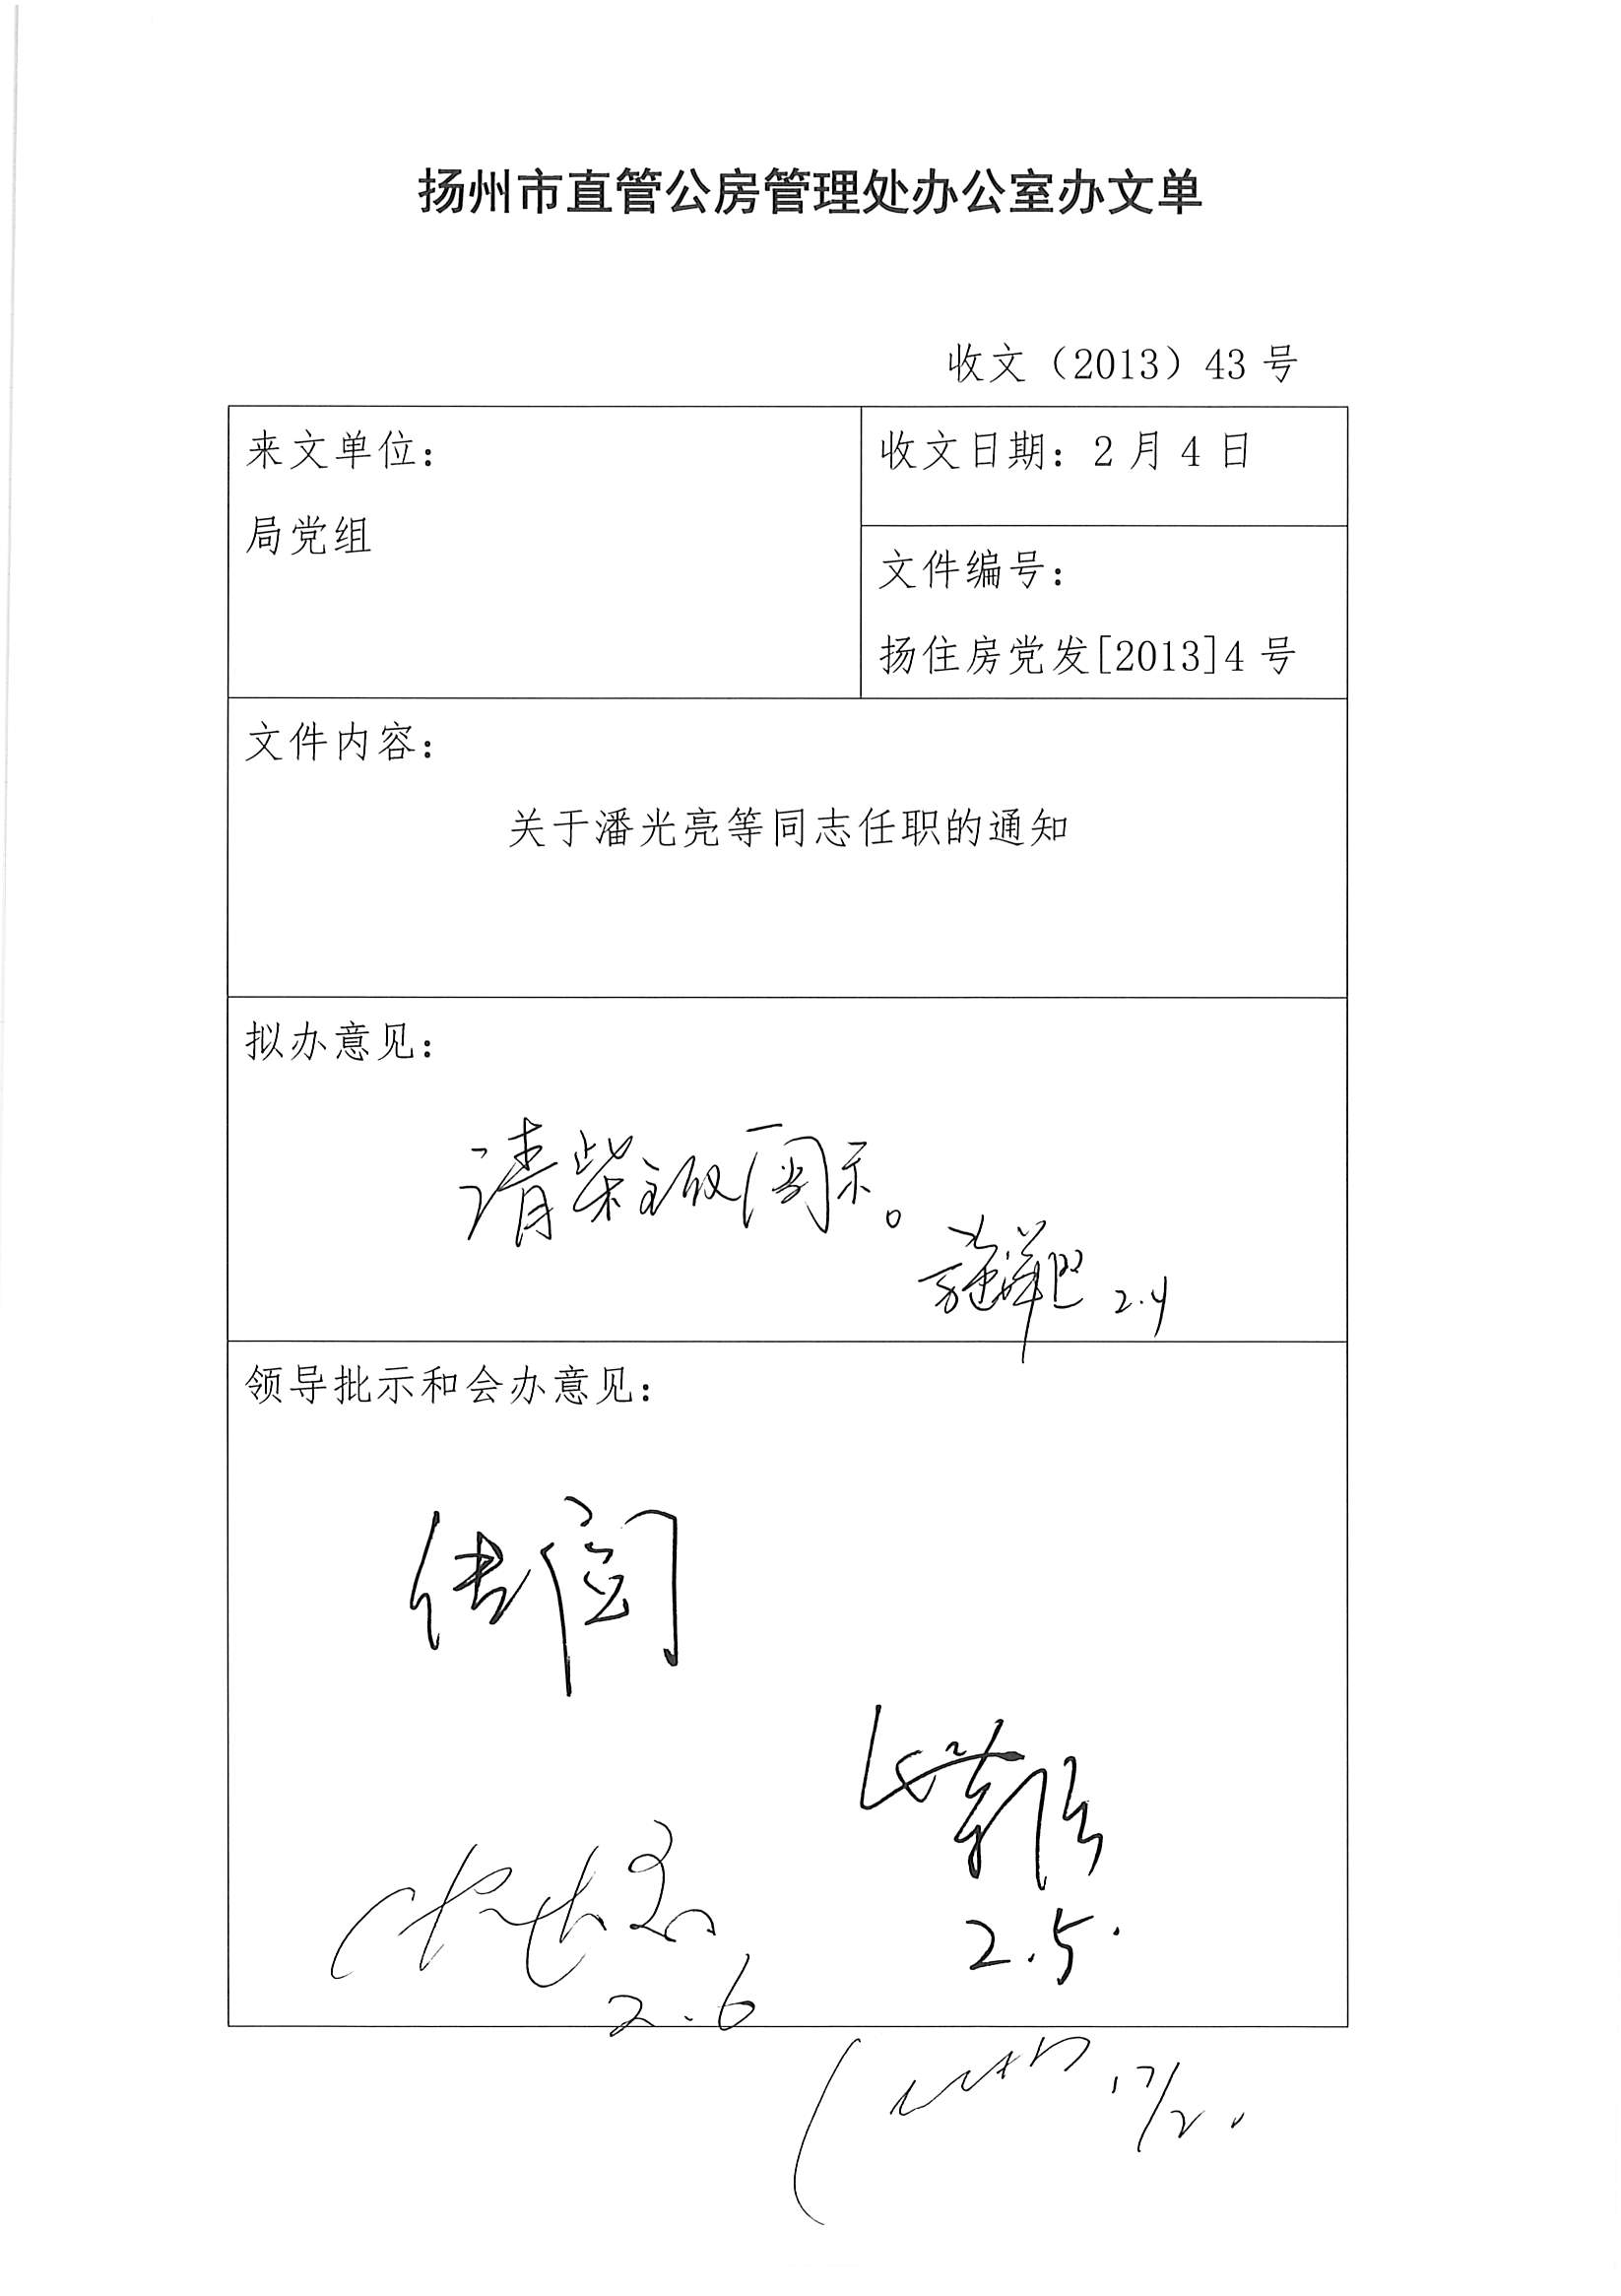 扬州市直管公房管理处办公室办文单
收文（2013）43 号
来文单位：
局党组
收文日期：2 月 4 日
文件编号：
扬住房党发[2013]4 号
文件内容：
关于潘光亮等同志任职的通知
拟办意见：
请柴主任阅示。
2.4
领导批示和会办意见：
传阅
2.5.
2.6
17/2.